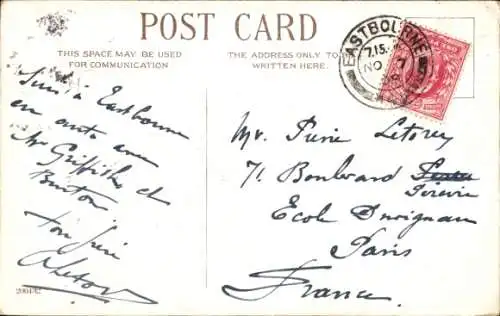 POST CARD
THIS SPACE MAY BE USED
FOR COMMUNICATION
THE ADDRESS ONLY TO
WRITTEN HERE.
EASTBOURNE
7.15
NO 7
Suis à Eastbourne
en auto avec
Mr Griffiths et
Burton
ton frère
Mr. Pierre Letorey
71 Boulevard
Pereire
Ecol
Paris
France